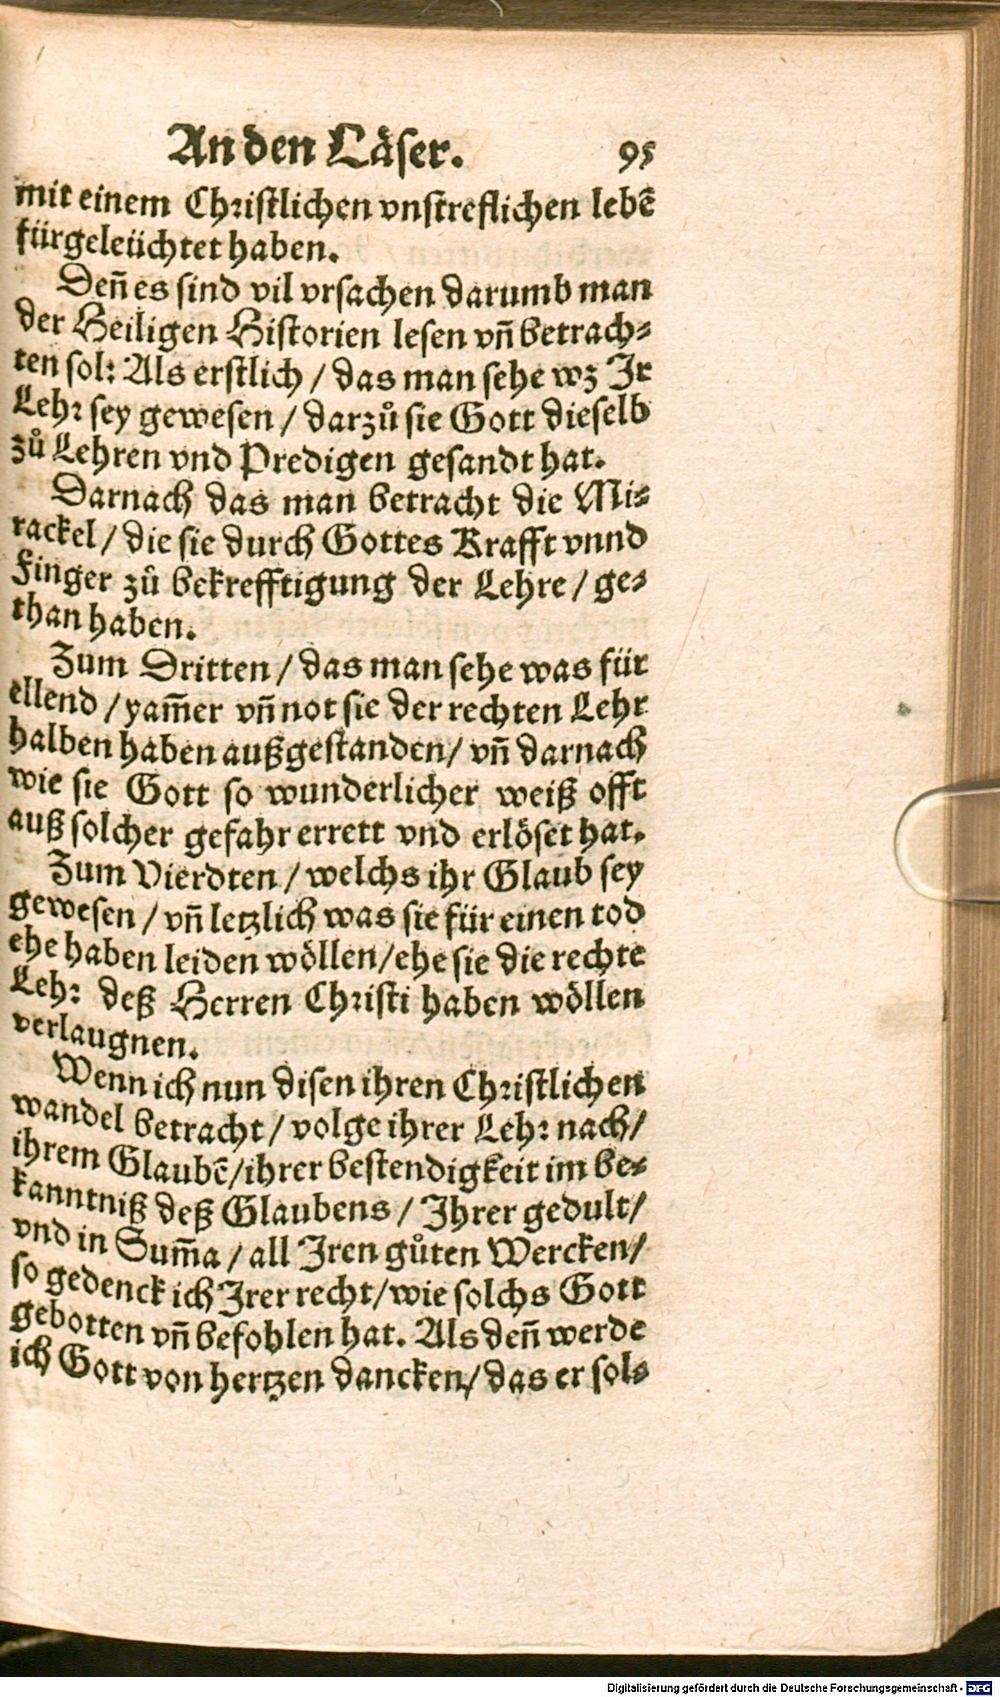 An den Läser. 95
mit einem Christlichen vnstreflichen lebē
fürgeleüchtet haben.
Deñ es sind vil vrsachen darumb man
der Heiligen Historien lesen vñ betrach⸗
ten sol: Als erstlich / das man sehe wz Ir
Lehr sey gewesen / darzů sie Gott dieselb
zů Lehren vnd Predigen gesandt hat.
Darnach das man betracht die Mi⸗
rackel / die sie durch Gottes Krafft vnnd
Finger zů bekrefftigung der Lehre / ge⸗
than haben.
Zum Dritten / das man sehe was für
ellend / yam̃er vñ not sie der rechten Lehr
halben haben außgestanden / vñ darnach
wie sie Gott so wunderlicher weiß offt
auß solcher gefahr errett vnd erlöset hat.
Zum Vierdten / welchs ihr Glaub sey
gewesen / vñ letzlich was sie für einen tod
ehe haben leiden wöllen / ehe sie die rechte
Lehr deß Herren Christi haben wöllen
verlaugnen.
Wenn ich nun disen ihren Christlichen
wandel betracht / volge ihrer Lehr nach /
ihrem Glaubē / ihrer bestendigkeit im be⸗
kanntniß deß Glaubens / Ihrer gedult /
vnd in Sum̃a / all Iren gůten Wercken /
so gedenck ich Irer recht / wie solchs Gott
gebotten vñ befohlen hat. Als deñ werde
ich Gott von hertzen dancken / das er sol⸗
Digitalisierung gefördert durch die Deutsche Forschungsgemeinschaft - DFG